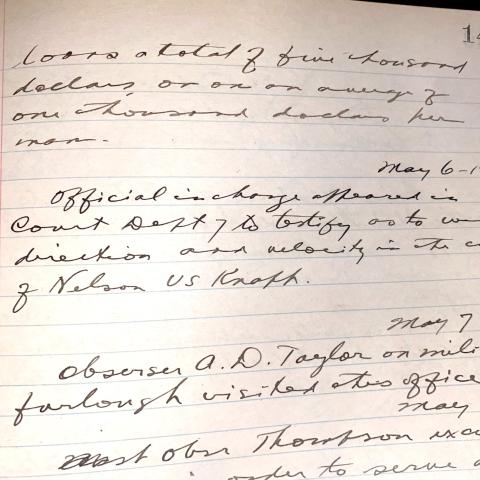 14
loans a total of five thousand
dollars, or on an average of
one thousand dollars per
man.
May 6-1
Official in charge appeared in
Court Dept 7 to testify as to
direction and velocity in the
of Nelson US Knapp.
May 7
Observer A. D. Taylor on
furlough visited this office
May
Asst Obsr Thompson
in order to serve